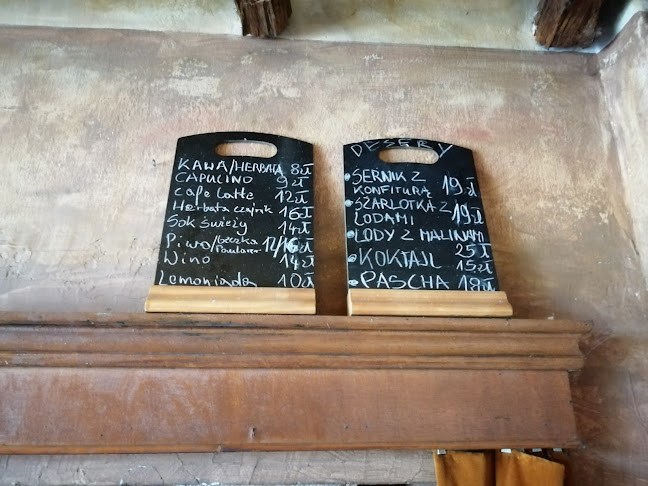 KAWA/HERBATA 8zł
CAPUCINO 9zł
Cafe Latte 12zł
Herbata czajnik 16zł
Sok świeży 14zł
Piwo/beczka 12/16zł
Paulaner
Wino 14zł
Lemoniada 10zł
DESERY
SERNIK Z
KONFITURĄ 19zł
SZARLOTKA Z
LODAMI 19zł
LODY Z MALINAMI
25zł
KOKTAJL 15zł
PASCHA 18zł